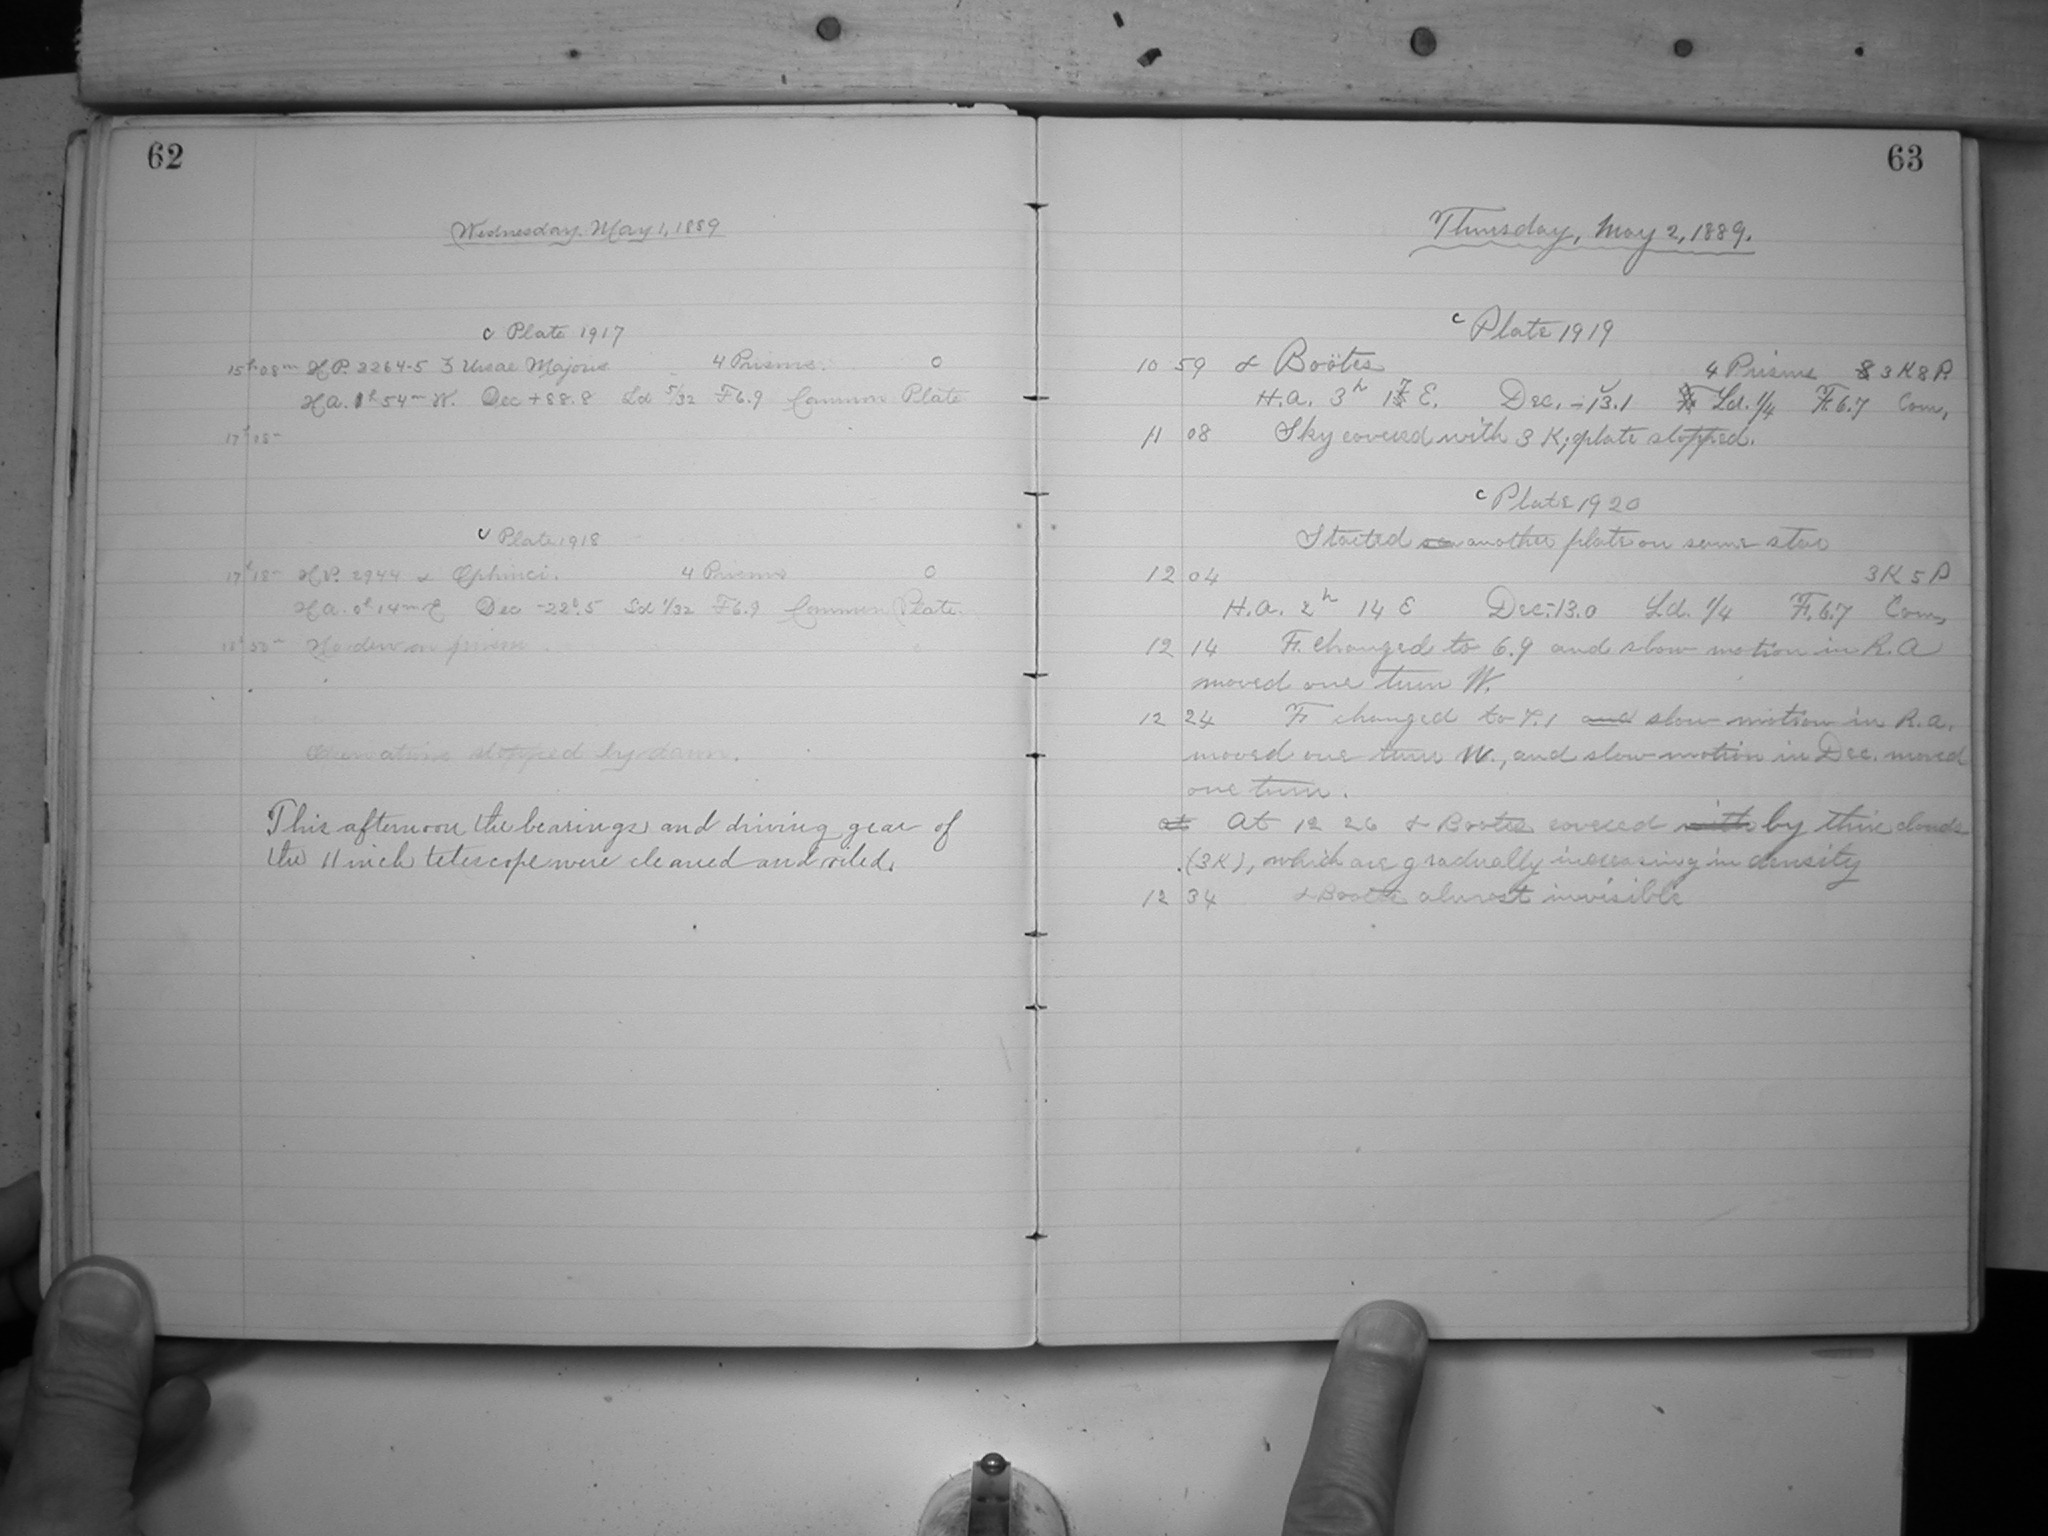 62
Wednesday. May 1, 1889
c Plate 1917
15h 08m H.P. 2264-5 ζ Ursae Majoris 4 Prisms. 0
H.A. 1h 54m W. Dec +88.8 Sd 5/32 F6.9 Common Plate
17h 18m
c Plate 1918
17h 18m H.P. 2944 α Ophiuci. 4 Prisms 0
H.A. 0h 14m E Dec -22.5 Sd 1/32 F6.9 Common Plate.
18h 50m No dew on prism
Observations stopped by dawn.
This afternoon the bearings and driving gear of
the 11 inch telescope were cleaned and oiled.
63
Thursday, May 2, 1889.
c Plate 1919
10 59 α Boötes 4 Prisms 3 K 8 P.
H.A. 3h 17 E. Dec. -13.1 Ld. 1/4 F. 6.7 Com,
11 08 Sky covered with 3 K; plate stopped.
c Plate 1920
Started another plate on same star
12 04 3 K 5 P
H.A. 2h 14 E Dec. -13.0 Ld. 1/4 F. 6.7 Com,
12 14 F. changed to 6.9 and slow motion in R.A
moved one turn W.
12 24 F. changed to 7.1 and slow motion in R.A.
moved one turn W., and slow motion in Dec. moved
one turn.
at At 12 26 α Bootes covered with by thin clouds
(3K), which are gradually increasing in density
12 34 α Bootes almost invisible